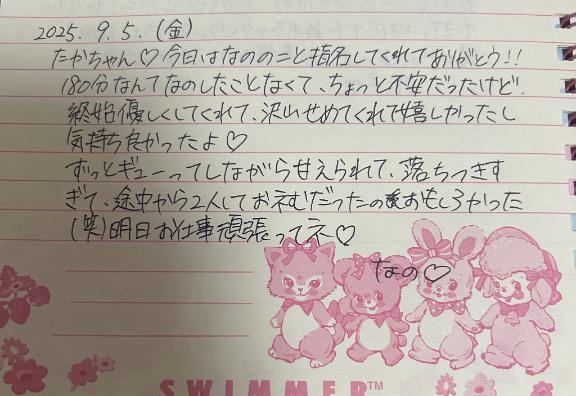 2025. 9. 5. (金)
たかちゃん♡今日はなののこと指名してくれてありがとう!!
180分なんてなのしたことなくて、ちょっと不安だったけど、
終始優しくしてくれて、沢山せめてくれて嬉しかったし
気持ち良かったよ♡
ずっとギューってしながら甘えられて、落ちつきす
ぎて、途中から2人しておネむだったのおもしろかった
(笑)明日お仕事頑張ってネ♡
なの♡
SWIMMER™